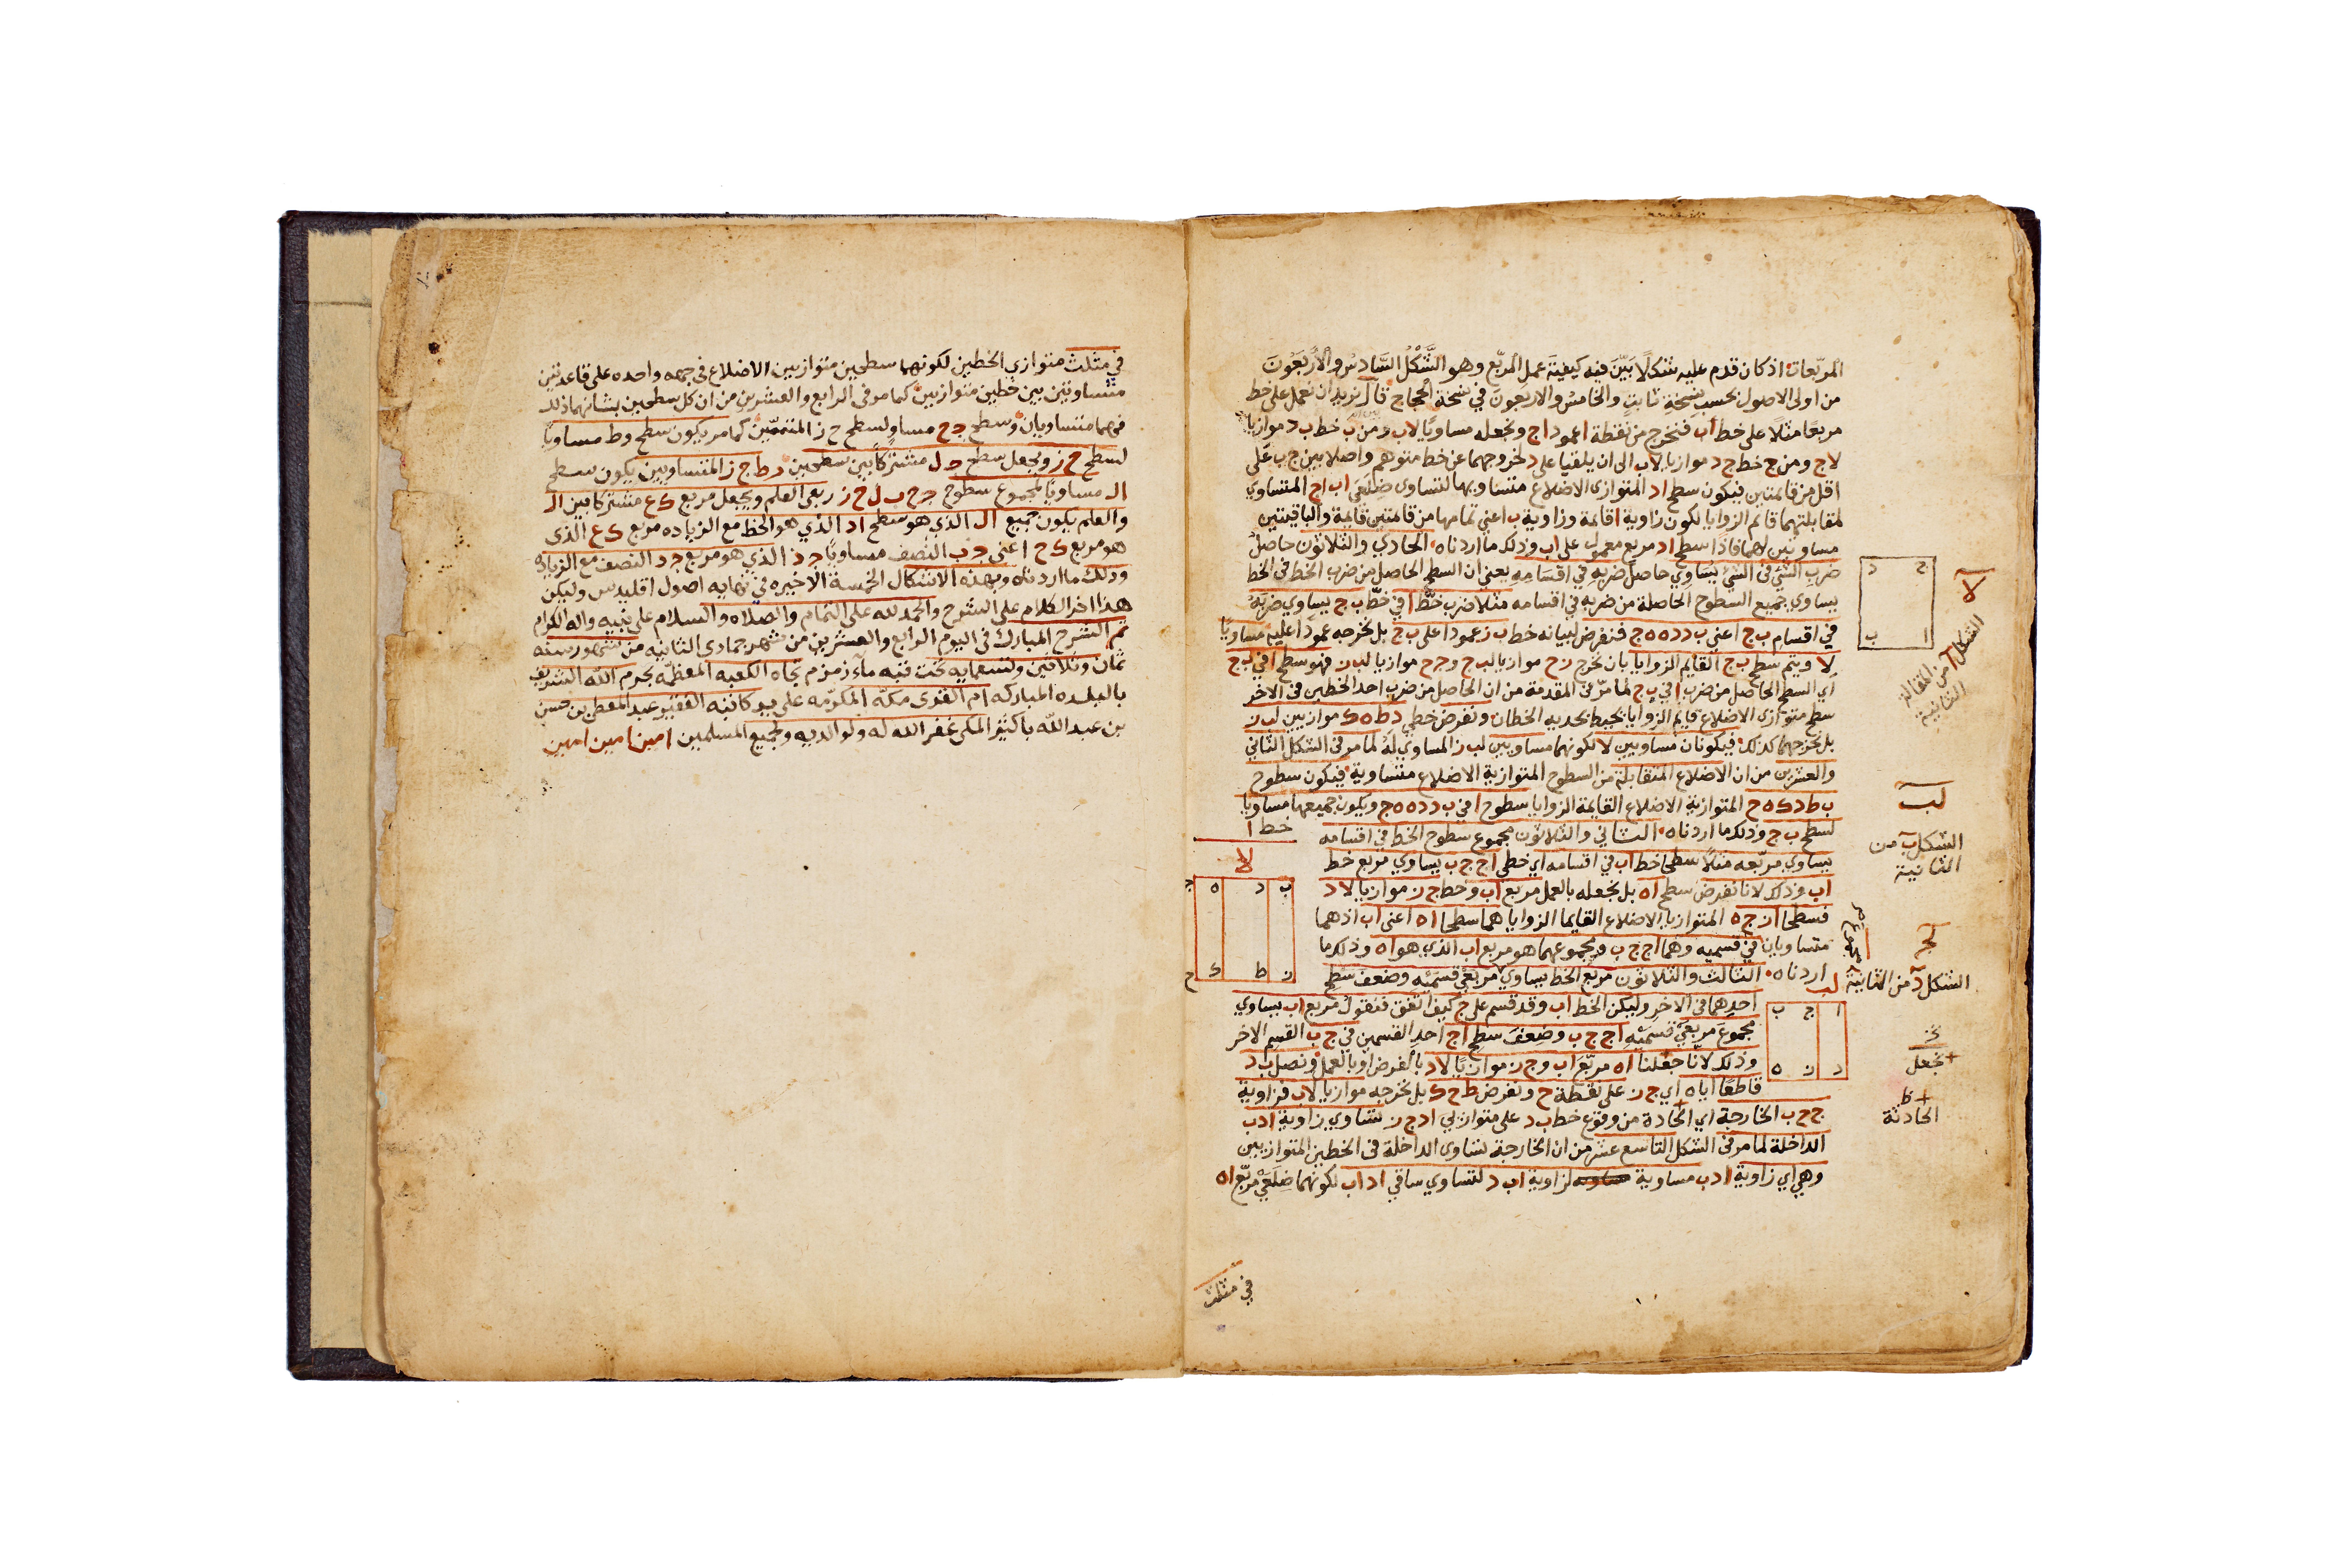 المربّعات اذ كان قدم عليه شكلًا بَيّن فيه كيفيّة عمل المربّع وهو الشّكل السّادس والاربعون
من اولى الاصول بحسب نسخة ثابت والخامس والاربعون في نسخة الحجاج قال نريد ان نعمل على خط
مربعًا مثلًا على خط اب فنخرج من نقطة ا عمود اج ونجعله مساويًا لاب ومن ب خط ب د موازيا
لاج ومن ج خط ج د موازيا لاب الى ان يلقيا على د لخروجهما عن خط متوهم واصلا بين ج ب على
اقل من قائمتين فيكون سطح اد المتوازى الاضلاع متساويها لتساوى ضلعى اب اج المتساوي
لمقابلتهما قائم الزوايا لكون زاوية ا قائمة وزاوية ب اعني تمامها من قائمتين قايمة والباقيتين
مساويتين لهما فاذا سطح اد مربع معمول على اب وذلك ما اردناه الحادي والثلاثون حاصل
ضرب الشئ في الشئ يساوي حاصل ضربه في اقسامه يعني ان السطح الحاصل من ضرب الخط في الخط
يساوي جميع السطوح الحاصلة من ضربه في اقسامه مثلا ضرب خط ا في خط ب ج يساوي ضربه
في اقسام ب ج اعني ب د د ه ه ج فنفرض لبيانه خط ب ز عمودا على ب ج بل نخرجه عمودا عليه مساويًا
لا ويتم سطح ب ج القايم الزوايا بان نخرج ز ح موازيا لب ج و ج ح موازيا لب ز فهو سطح ا في ب ج
اي السطح الحاصل من ضرب ا في ب ج لما مرّ في المقدمة من ان الحاصل من ضرب احد الخطين في الاخر
سطح متوازى الاضلاع قايم الزوايا يحيط بحديه الخطان ونفرض خطي د ط ه ك موازيين لب ز
بل نخرجهما كذلك فيكونان مساويين لا لكونهما مساويين لب ز المساوي له لما مر في الشكل الثاني
والعشرين من ان الاضلاع المتقابلة من السطوح المتوازية الاضلاع متساوية فيكون سطوح
ب ط د ك ه ح المتوازية الاضلاع القايمة الزوايا سطوح ا في ب د د ه ه ج ويكون جميعها مساويا
لسطح ب ج وذلك ما اردناه الثاني والثلاثون مجموع سطوح الخط في اقسامه
يساوي مربّعه مثلا سطحا خط اب في اقسامه اي خطي اج ج ب يساوي مربع خط
اب وذلك لانا نفرض سطح اه بل نجعله بالعمل مربع اب وخط ج ز موازيا لا د
فسطحا از ج ه المتوازيا الاضلاع القايما الزوايا هما سطحا اه اعنى اب اذهما
متساويان في قسميه وهما اج ج ب ومجموعهما هو مربع اب الذي هو اه وذلك ما
اردناه الثالث والثلاثون مربع الخط يساوي مربعي قسميه وضعف سطح
احدهما في الاخر وليكن الخط اب وقد قسم على ج كيف اتفق فنقول مربع اب يساوي
مجموع مربعي قسميه اج ج ب وضعف سطح اج احد القسمين في ج ب القسم الاخر
وذلك لانّا جعلنا اه مربّع اب و ج ز موازيًا لاد بالفرض او بالعمل ونصل ب د
قاطعًا اياه اي ج ز على نقطة ح ونفرض ط ح ك بل نخرجه موازيا لاب فزاوية
ج ح ب الخارجة اي الحادة من وقوع خط ب د على متوازيي اد ج ز تساوي زاوية ادب
الداخلة لما مر في الشكل التاسع عشر من ان الخارجة تساوى الداخلة في الخطين المتوازيين
وهي اي زاوية ادب مساوية لزاوية اب د لتساوي ساقي اد اب لكونهما ضلعي مربّع اه
في مثلث
خط ا
لا
ب د ه ج
ز ط ك ح
ج د
ا ب
لا
الشكل ا من المقالة
الثانية
لب
الشكل ب من
الثانية
لج
الشكل د من الثانية
لب
ا ج ب
د ز ه
نجعل
الحادثة
في مثلث متوازي الخطين لكونهما سطحين متوازيين الاضلاع في جهه واحده على قاعدتين
متساويتين بين خطين متوازيين كما مر في الرابع والعشرين من ان كل سطحين بشانهما ذلك
فهما متساويان وسطح ج ح مساو لسطح ح ز المتممّين كما مر يكون سطح وط مساويًا
لسطح ح ز ونجعل سطح ج ل مشتركًا بين سطحين د ط ج ز المتساويين يكون سطح
ال مساويًا لمجموع سطوح ج ح ب ل ح ز ربعي العلم ويجعل مربع ك ع مشتركا بين ال
والعلم يكون جميع ال الذي هو سطح اد الذي هو الخط مع الزياده مربع ك ع الذى
هو مربع ك ح اعنى ج ب النصف مساويًا ج ز الذي هو مربع ج د النصف مع الزياده
وذلك ما اردناه وبهذه الاشكال الخمسة الاخيره في نهايه اصول اقليدس وليكن
هذا اخر الكلام على الشرح والحمد لله على التمام والصلاه والسلام على نبيه واله الكرام
تم الشرح المبارك في اليوم الرابع والعشرين من شهر جمادى الثانيه من شهور سنه
ثمان وثلاثين وتسعمايه تحت قبه ماء زمزم تجاه الكعبه المعظمّه بحرم الله الشريف
بالبلده المباركه ام القرى مكه المكرّمه على يد كاتبه الفقير عبد المعطى بن حسن
بن عبد الله باكثير المكى غفر الله له ولوالديه ولجميع المسلمين امين امين امين